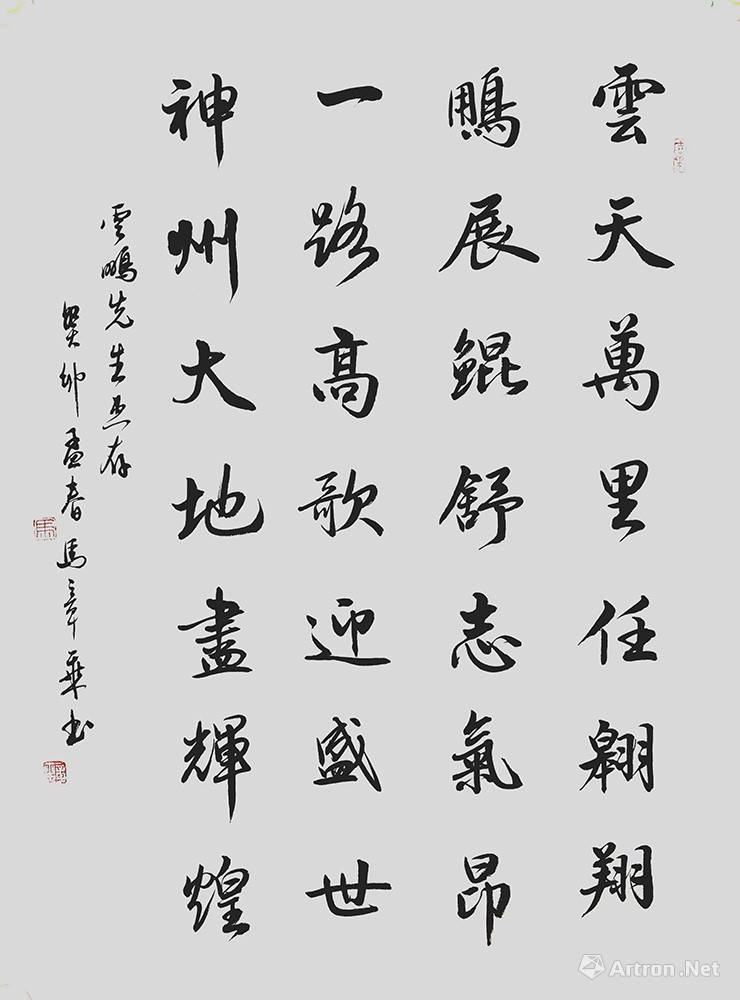 雲天萬里任翱翔
鵬展鯤舒志氣昂
一路高歌迎盛世
神州大地盡輝煌
雲鵬先生惠存
癸卯孟春馬章乘书
Artron.Net